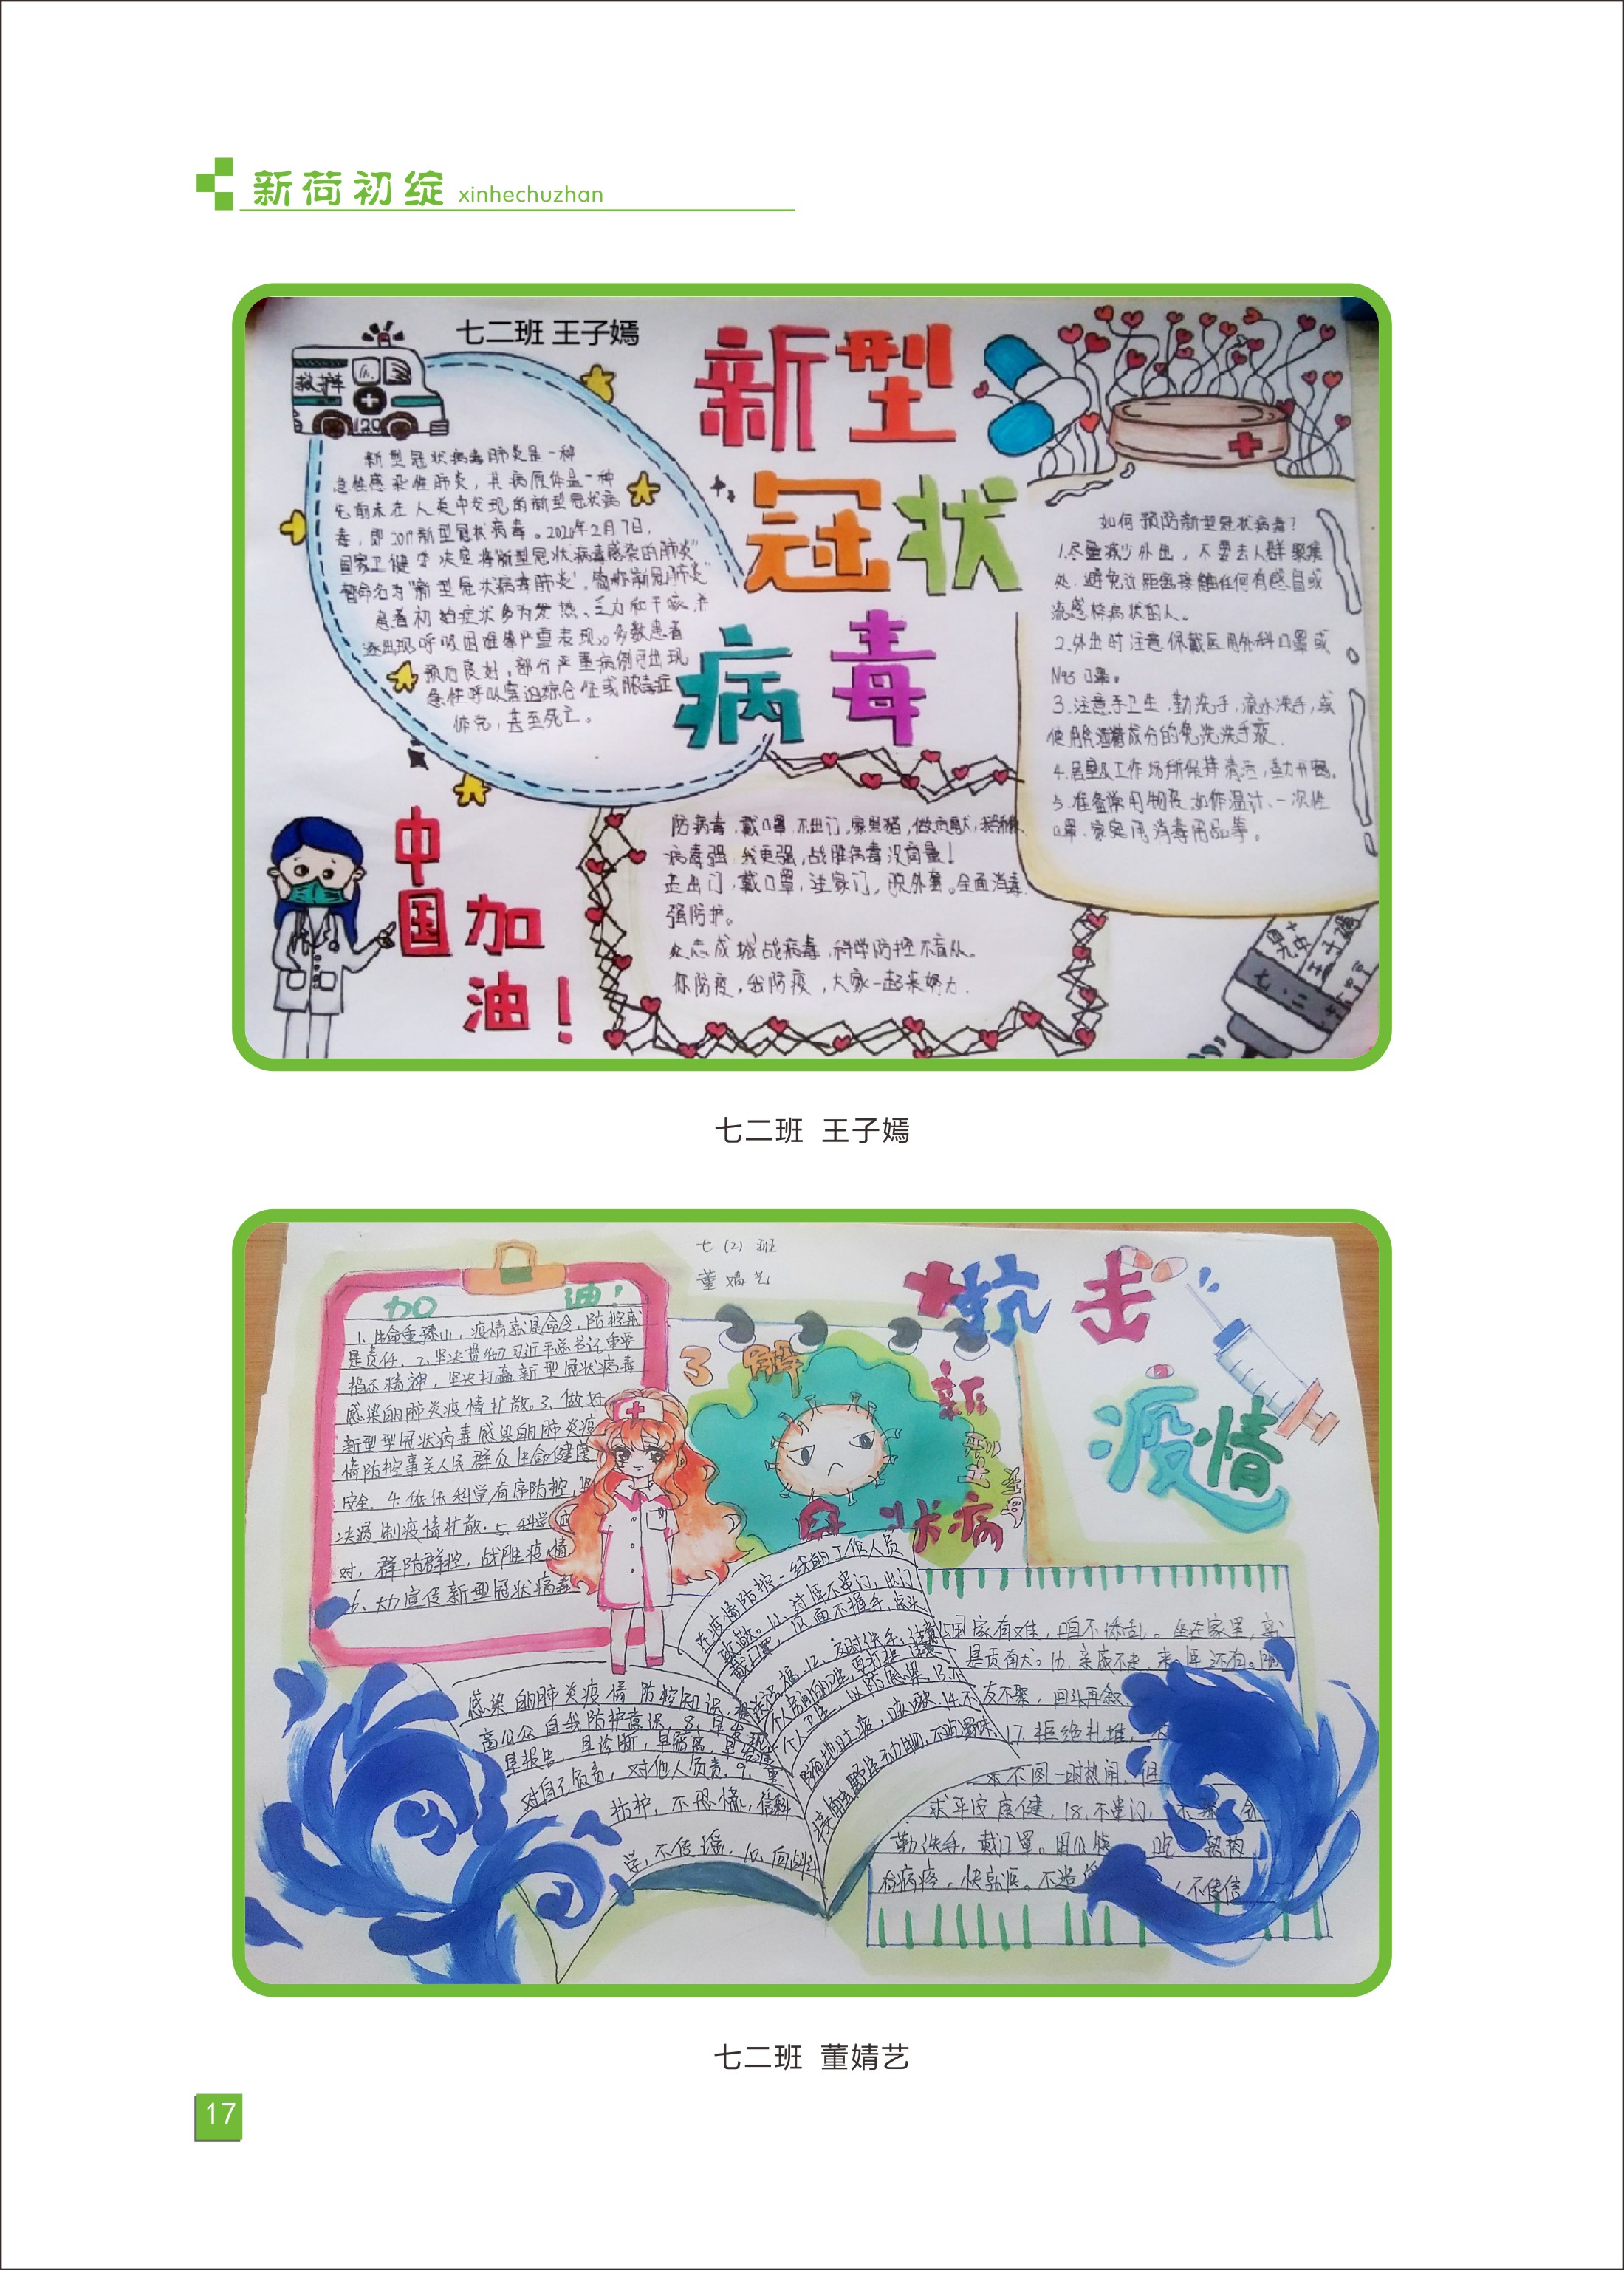 新荷初绽 xinhechuzhan
七二班 王子嫣
救护车
120
新型
冠状
病毒
新型冠状病毒肺炎是一种
急性感染性肺炎，其病原体是一种
先前未在人类中发现的新型冠状病
毒，即2019新型冠状病毒。2020年2月7日，
国家卫健委决定将"新型冠状病毒感染的肺炎"
暂命名为"新型冠状病毒肺炎"，简称"新冠肺炎"
患者初始症状多为发热、乏力和干咳，并
逐出现呼吸困难等严重表现。多数患者
预后良好，部分严重病例可出现
急性呼吸窘迫综合征或脓毒症
休克，甚至死亡。
如何预防新型冠状病毒？
1.尽量减少外出，不要去人群聚集
处，避免近距离接触任何有感冒或
流感样病状的人。
2.外出时注意佩戴医用外科口罩或
N95口罩。
3.注意手卫生，勤洗手，流水洗手，或
使用含酒精成分的免洗洗手液.
4.居室及工作场所保持清洁，勤开窗。
5.准备常用物资，如体温计、一次性
口罩、家庭用消毒用品等。
中国加油！
防病毒，戴口罩，不出门，家里猫，做贡献，
病毒强，我更强，战胜病毒没商量！
走出门，戴口罩，进家门，脱外套。全面消毒
强防护。
众志成城战病毒，科学防控不盲从。
你防疫，我防疫，大家一起来努力.
七二班 王子嫣
七（2）班
董婧艺
抗击
疫情
加油！
了解
新型冠状病毒
1、生命重泰山，疫情就是命令，防控就
是责任。2、坚决贯彻习近平总书记重要
指示精神，坚决打赢新型冠状病毒
感染的肺炎疫情扩散。3、做好
新型型冠状病毒感染的肺炎疫
情防控事关人民群众生命健康
安全。4、依法科学有序防控，坚
决遏制疫情扩散。5、科学应
对，群防群控，战胜疫情
6、大力宣传新型冠状病毒
感染的肺炎疫情防控知识，提
高公众自我防护意识。8、早发现
早报告，早诊断，早隔离，早治疗
对自己负责，对他人负责。9、重
防护，不恐慌，信科
学，不传谣。10、向战斗
在疫情防控一线的工作人员
致敬。11、过年不串门，出门
戴口罩，见面不握手，点头
祝福。12、及时洗手，注意
个人卫生，以防感染。13、不
随地吐痰，咳嗽。14、不
接触野生动物，不吃野味
15、国家有难，咱不添乱。坐在家里，就
是贡献大。16、亲戚不走，来年还有。朋
友不聚，回头再叙
17、拒绝扎堆，不
不图一时热闹，但
求平安康健。18、不串门，不聚会
勤洗手，戴口罩。用公筷，吃熟肉
有病疼，快就医。不造谣，不传信
七二班 董婧艺
17